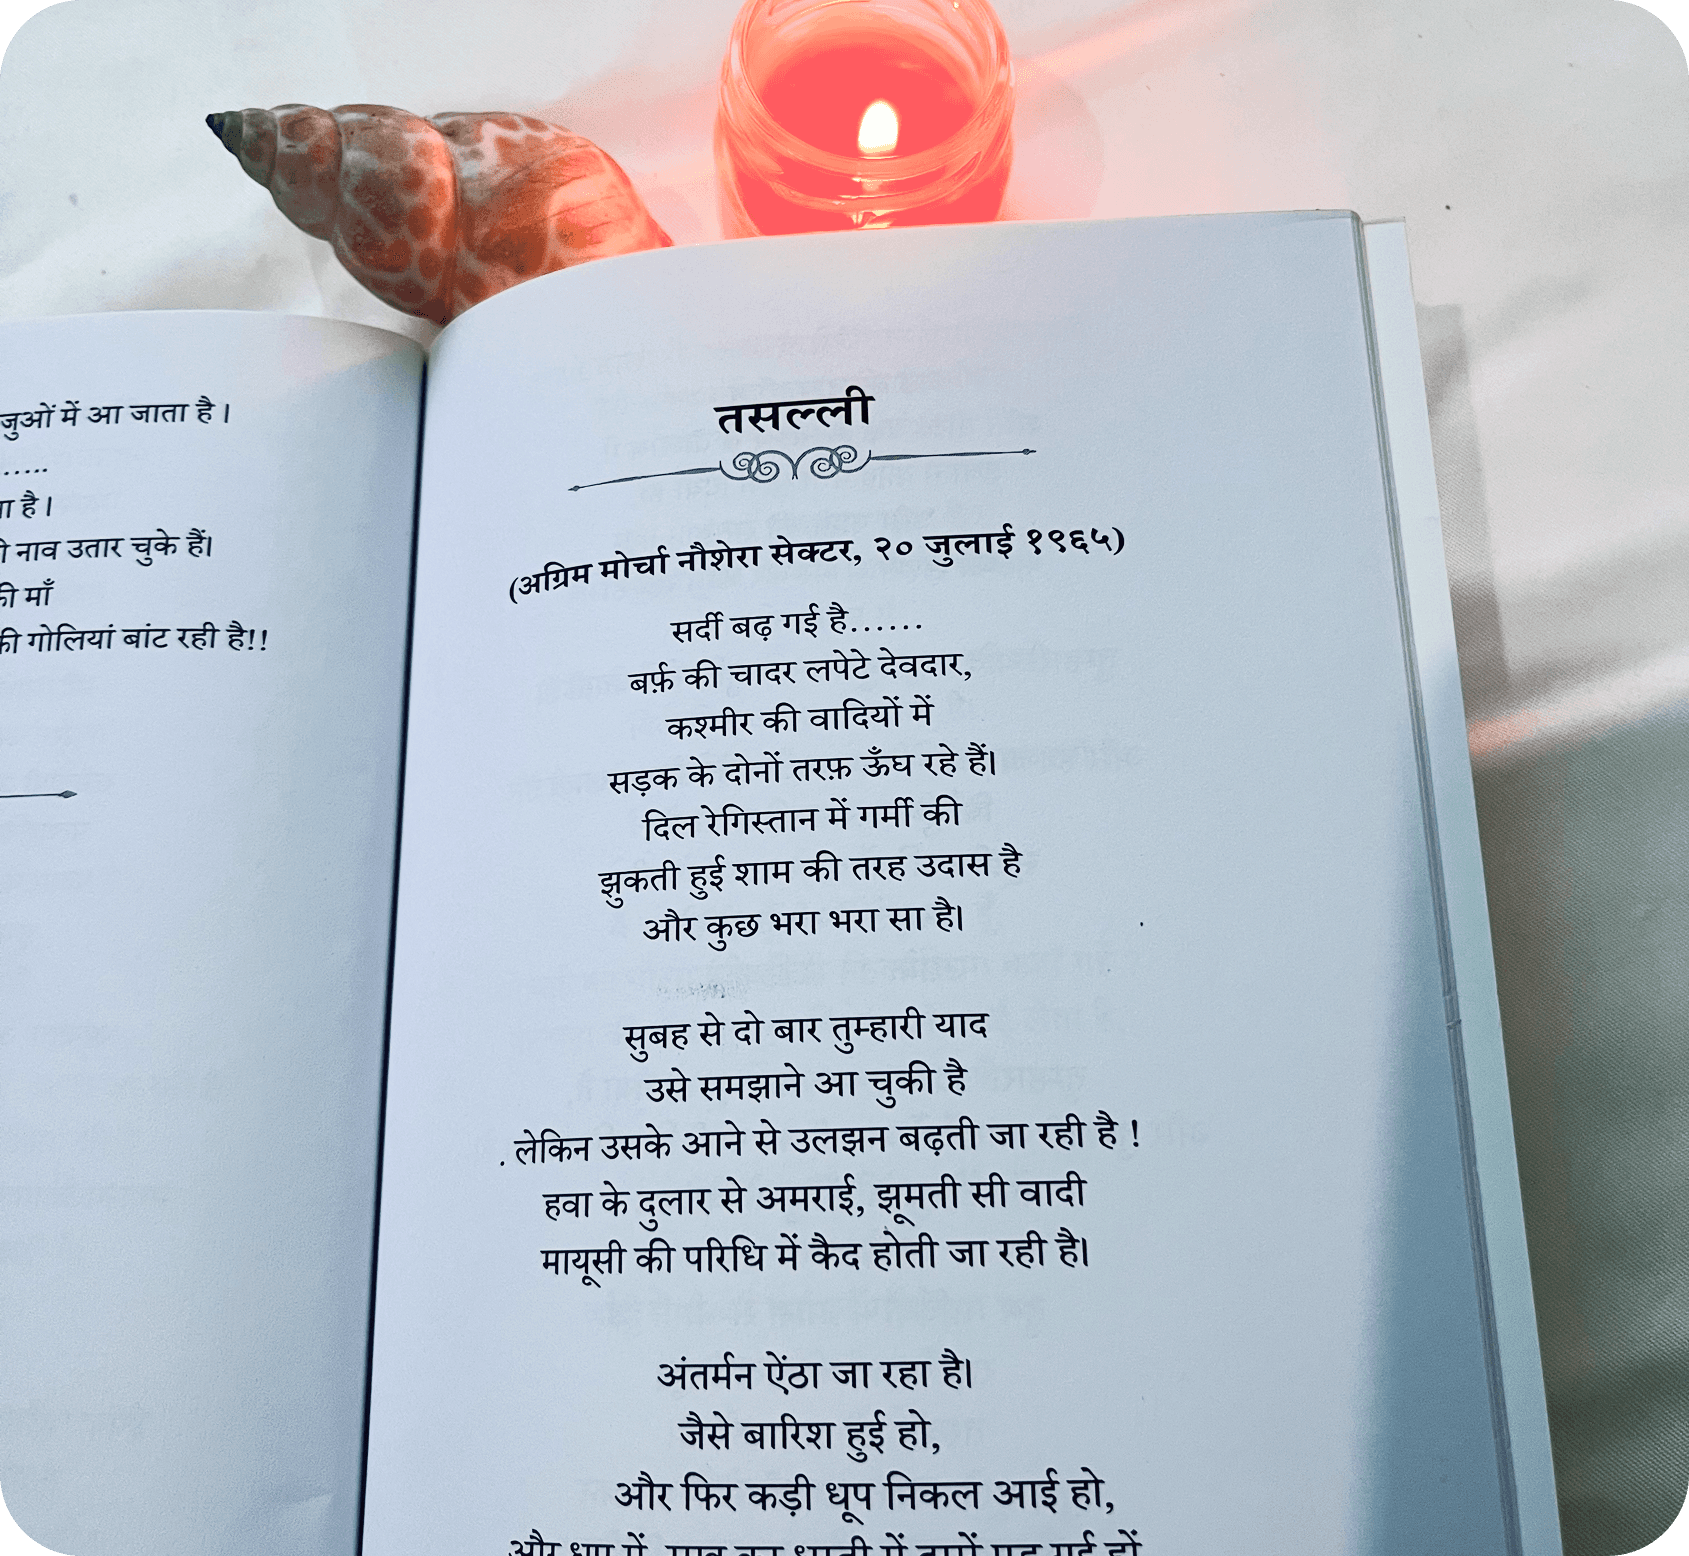 जुओं में आ जाता है।
......
है।
नाव उतार चुके हैं।
की माँ
की गोलियां बांट रही है!!
तसल्ली
(अग्रिम मोर्चा नौशेरा सेक्टर, २० जुलाई १९६५)
सर्दी बढ़ गई है......
बर्फ़ की चादर लपेटे देवदार,
कश्मीर की वादियों में
सड़क के दोनों तरफ़ ऊँघ रहे हैं।
दिल रेगिस्तान में गर्मी की
झुकती हुई शाम की तरह उदास है
और कुछ भरा भरा सा है।
सुबह से दो बार तुम्हारी याद
उसे समझाने आ चुकी है
लेकिन उसके आने से उलझन बढ़ती जा रही है !
हवा के दुलार से अमराई, झूमती सी वादी
मायूसी की परिधि में कैद होती जा रही है।
अंतर्मन ऐंठा जा रहा है।
जैसे बारिश हुई हो,
और फिर कड़ी धूप निकल आई हो,
और धूप में